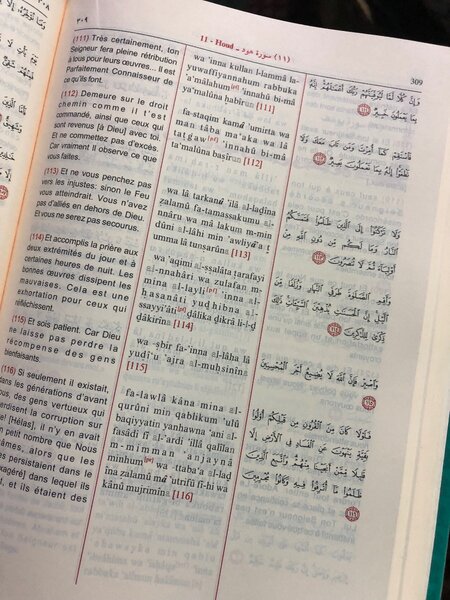 ٣٠٩
11 - Houd - سورة هود (١١)
309
(111) Très certainement, ton
Seigneur fera pleine rétribution
à tous pour leurs œuvres... Il est
Parfaitement Connaisseur de
ce qu'ils font.
(112) Demeure sur le droit
chemin comme il t'est
commandé, ainsi que ceux qui
sont revenus [à Dieu] avec toi.
Et ne commettez pas d'excès.
Car vraiment Il observe ce que
vous faites.
(113) Et ne vous penchez pas
vers les injustes: sinon le Feu
vous atteindrait. Vous n'avez
pas d'alliés en dehors de Dieu.
Et vous ne serez pas secourus.
(114) Et accomplis la prière aux
deux extrémités du jour et à
certaines heures de nuit. Les
bonnes œuvres dissipent les
mauvaises. Cela est une
exhortation pour ceux qui
réfléchissent.
(115) Et sois patient. Car Dieu
ne laisse pas perdre la
récompense des gens
bienfaisants.
(116) Si seulement il existait,
dans les générations d'avant
des gens vertueux qui
interdisent la corruption sur
[Hélas], il n'y en avait
petit nombre que Nous
alors que les
persistaient dans le
exagéré] dans lequel ils
et ils étaient des
wa 'inna kullan l-lammâ la-
yuwaffiyannahum rabbuka
'a'mâlahum [ge] 'innahû bi-mâ
ya'malûna ḫabîrun [111]
fa-staqim kamâ 'umirta wa
man tâba ma'aka wa lâ
taṭġaw [ge] 'innahû bi-mâ
ta'malûna baṣîrun [112]
wa lâ tarkanû 'ilâ al-laḏîna
ẓalamû fa-tamassakumu al-
nnâru wa mâ lakum m-min
dûni al-lâhi min 'awliyâ'a ṯ
umma lâ tunṣarûna [113]
wa 'aqimi al-ṣṣalâta ṭarafayi
al-nnahâri wa zulafan m-
mina al-layli [ge] 'inna al-
ḥasanâti yuḏhibna al-
ssayyi'âti [ge] ḏâlika ḏikrâ li-l-ḏ
ḏâkirîna [114]
wa ṣbir fa-'inna al-lâha lâ
yuḍî'u 'ajra al-muḥsinîna
[115]
fa-lawlâ kâna mina al-
qurûni min qablikum 'ulû
baqiyyatin yanhawna 'ani al-
fasâdi fî al-'arḍi 'illâ qalîlan
m-mimman 'anjaynâ
minhum [ge] wa ttaba'a al-laḏ
îna ẓalamû mâ 'utrifû fî-hi wa
kânû mujrimîna [116]
وَإِنَّ كُلًّا لَّمَّا لَيُوَفِّيَنَّهُمْ رَبُّكَ أَعْمَالَهُمْ إِنَّهُ
بِمَا يَعْمَلُونَ خَبِيرٌ ١١١
فَاسْتَقِمْ كَمَا أُمِرْتَ وَمَن تَابَ مَعَكَ وَلَا
تَطْغَوْا إِنَّهُ بِمَا تَعْمَلُونَ بَصِيرٌ ١١٢
وَلَا تَرْكَنُوا إِلَى الَّذِينَ ظَلَمُوا فَتَمَسَّكُمُ
النَّارُ وَمَا لَكُم مِّن دُونِ اللَّهِ مِنْ
أَوْلِيَاءَ ثُمَّ لَا تُنصَرُونَ ١١٣
وَأَقِمِ الصَّلَوٰةَ طَرَفَيِ النَّهَارِ وَزُلَفًا مِّنَ
الَّيْلِ إِنَّ الْحَسَنَاتِ يُذْهِبْنَ السَّيِّئَاتِ ذَٰلِكَ
ذِكْرَىٰ لِلذَّاكِرِينَ ١١٤
وَاصْبِرْ فَإِنَّ اللَّهَ لَا يُضِيعُ أَجْرَ الْمُحْسِنِينَ ١١٥
فَلَوْلَا كَانَ مِنَ الْقُرُونِ مِن قَبْلِكُمْ أُولُوا
بَقِيَّةٍ يَنْهَوْنَ عَنِ الْفَسَادِ فِي الْأَرْضِ إِلَّا
قَلِيلًا مِّمَّنْ أَنجَيْنَا مِنْهُمْ وَاتَّبَعَ الَّذِينَ
ظَلَمُوا مَا أُتْرِفُوا فِيهِ وَكَانُوا مُجْرِمِينَ ١١٦